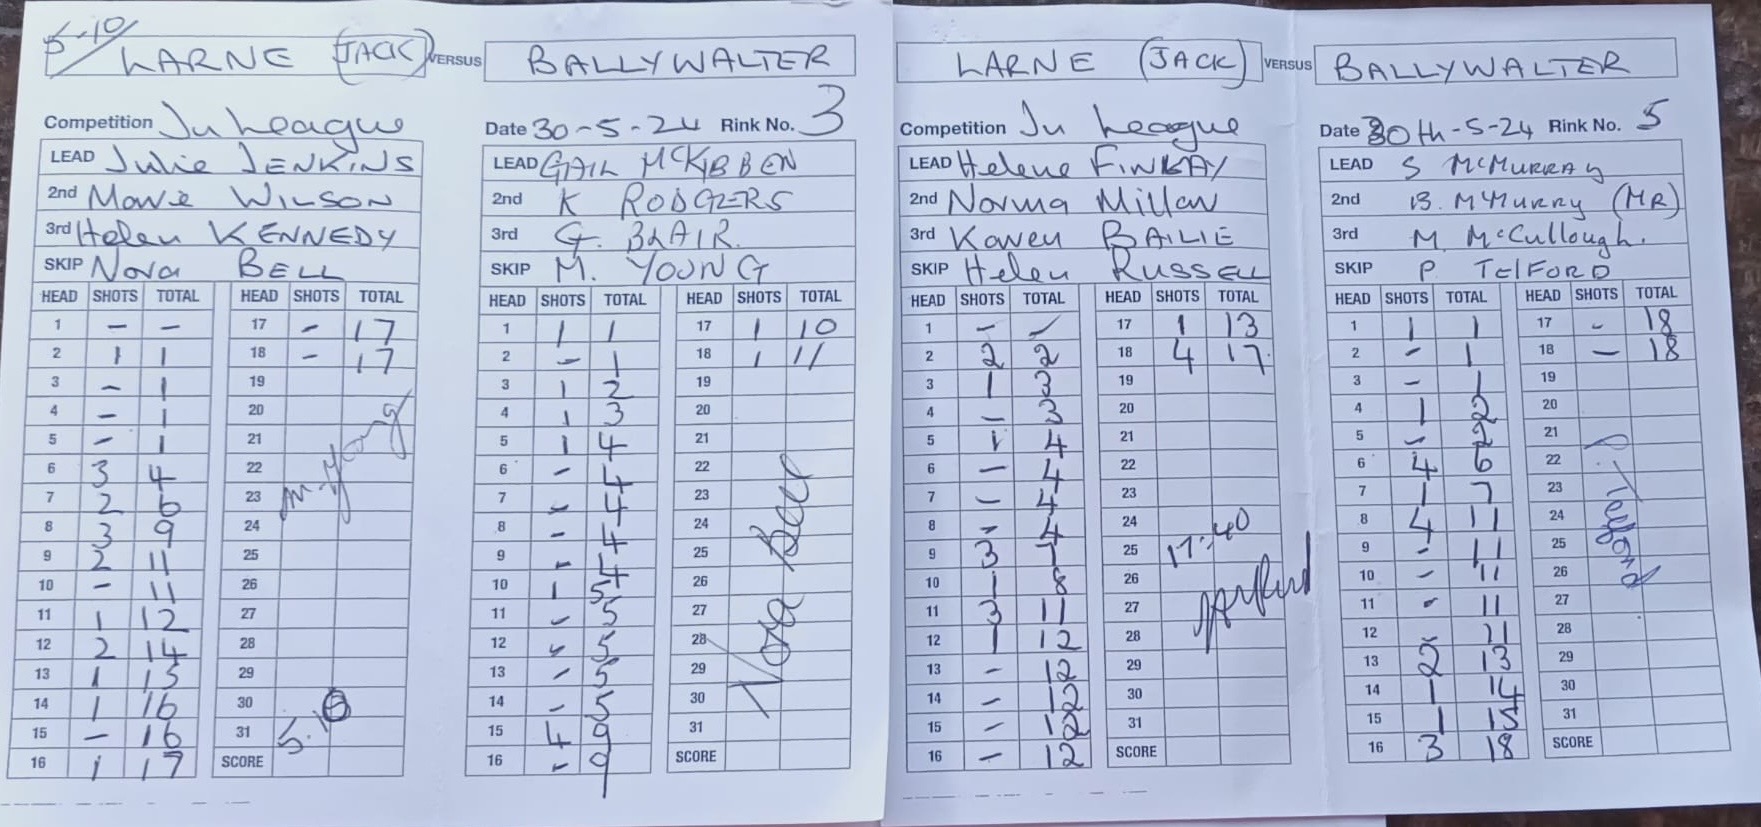 5-10
LARNE (JACK) VERSUS BALLYWALTER
Competition Ju League Date 30-5-24 Rink No. 3
LEAD Julie JENKINS LEAD GAIL McKIBBEN
2nd Marie WILSON 2nd K RODGERS
3rd Helen KENNEDY 3rd G. BLAIR.
SKIP Nora BELL SKIP M. YOUNG
HEAD SHOTS TOTAL HEAD SHOTS TOTAL HEAD SHOTS TOTAL HEAD SHOTS TOTAL
1 - - 17 - 17 1 1 1 17 1 10
2 1 1 18 - 17 2 - 1 18 1 11
3 - 1 19 3 1 2 19
4 - 1 20 4 1 3 20
5 - 1 21 5 1 4 21
6 3 4 22 6 - 4 22
7 2 6 23 7 - 4 23
8 3 9 24 8 - 4 24
9 2 11 25 9 - 4 25
10 - 11 26 10 1 5 26
11 1 12 27 11 - 5 27
12 2 14 28 12 - 5 28
13 1 15 29 13 - 5 29
14 1 16 30 14 - 5 30
15 - 16 31 15 4 9 31
16 1 17 SCORE 16 - 9 SCORE
M. Young
5.10
Nora Bell
LARNE (JACK) VERSUS BALLYWALTER
Competition Ju League Date 30th-5-24 Rink No. 5
LEAD Helene FINLAY LEAD S McMURRAY
2nd Norma Millar 2nd B. McMurry (MR)
3rd Karen BAILIE 3rd M. McCullough.
SKIP Helen RUSSELL SKIP P TElFORD
HEAD SHOTS TOTAL HEAD SHOTS TOTAL HEAD SHOTS TOTAL HEAD SHOTS TOTAL
1 - - 17 1 13 1 1 1 17 - 18
2 2 2 18 4 17. 2 - 1 18 - 18
3 1 3 19 3 - 1 19
4 - 3 20 4 1 2 20
5 1 4 21 5 - 2 21
6 - 4 22 6 4 6 22
7 - 4 23 7 1 7 23
8 - 4 24 8 4 11 24
9 3 7 25 9 - 11 25
10 1 8 26 10 - 11 26
11 3 11 27 11 - 11 27
12 1 12 28 12 - 11 28
13 - 12 29 13 2 13 29
14 - 12 30 14 1 14 30
15 - 12 31 15 1 15 31
16 - 12 SCORE 16 3 18 SCORE
17:40
P. Telford